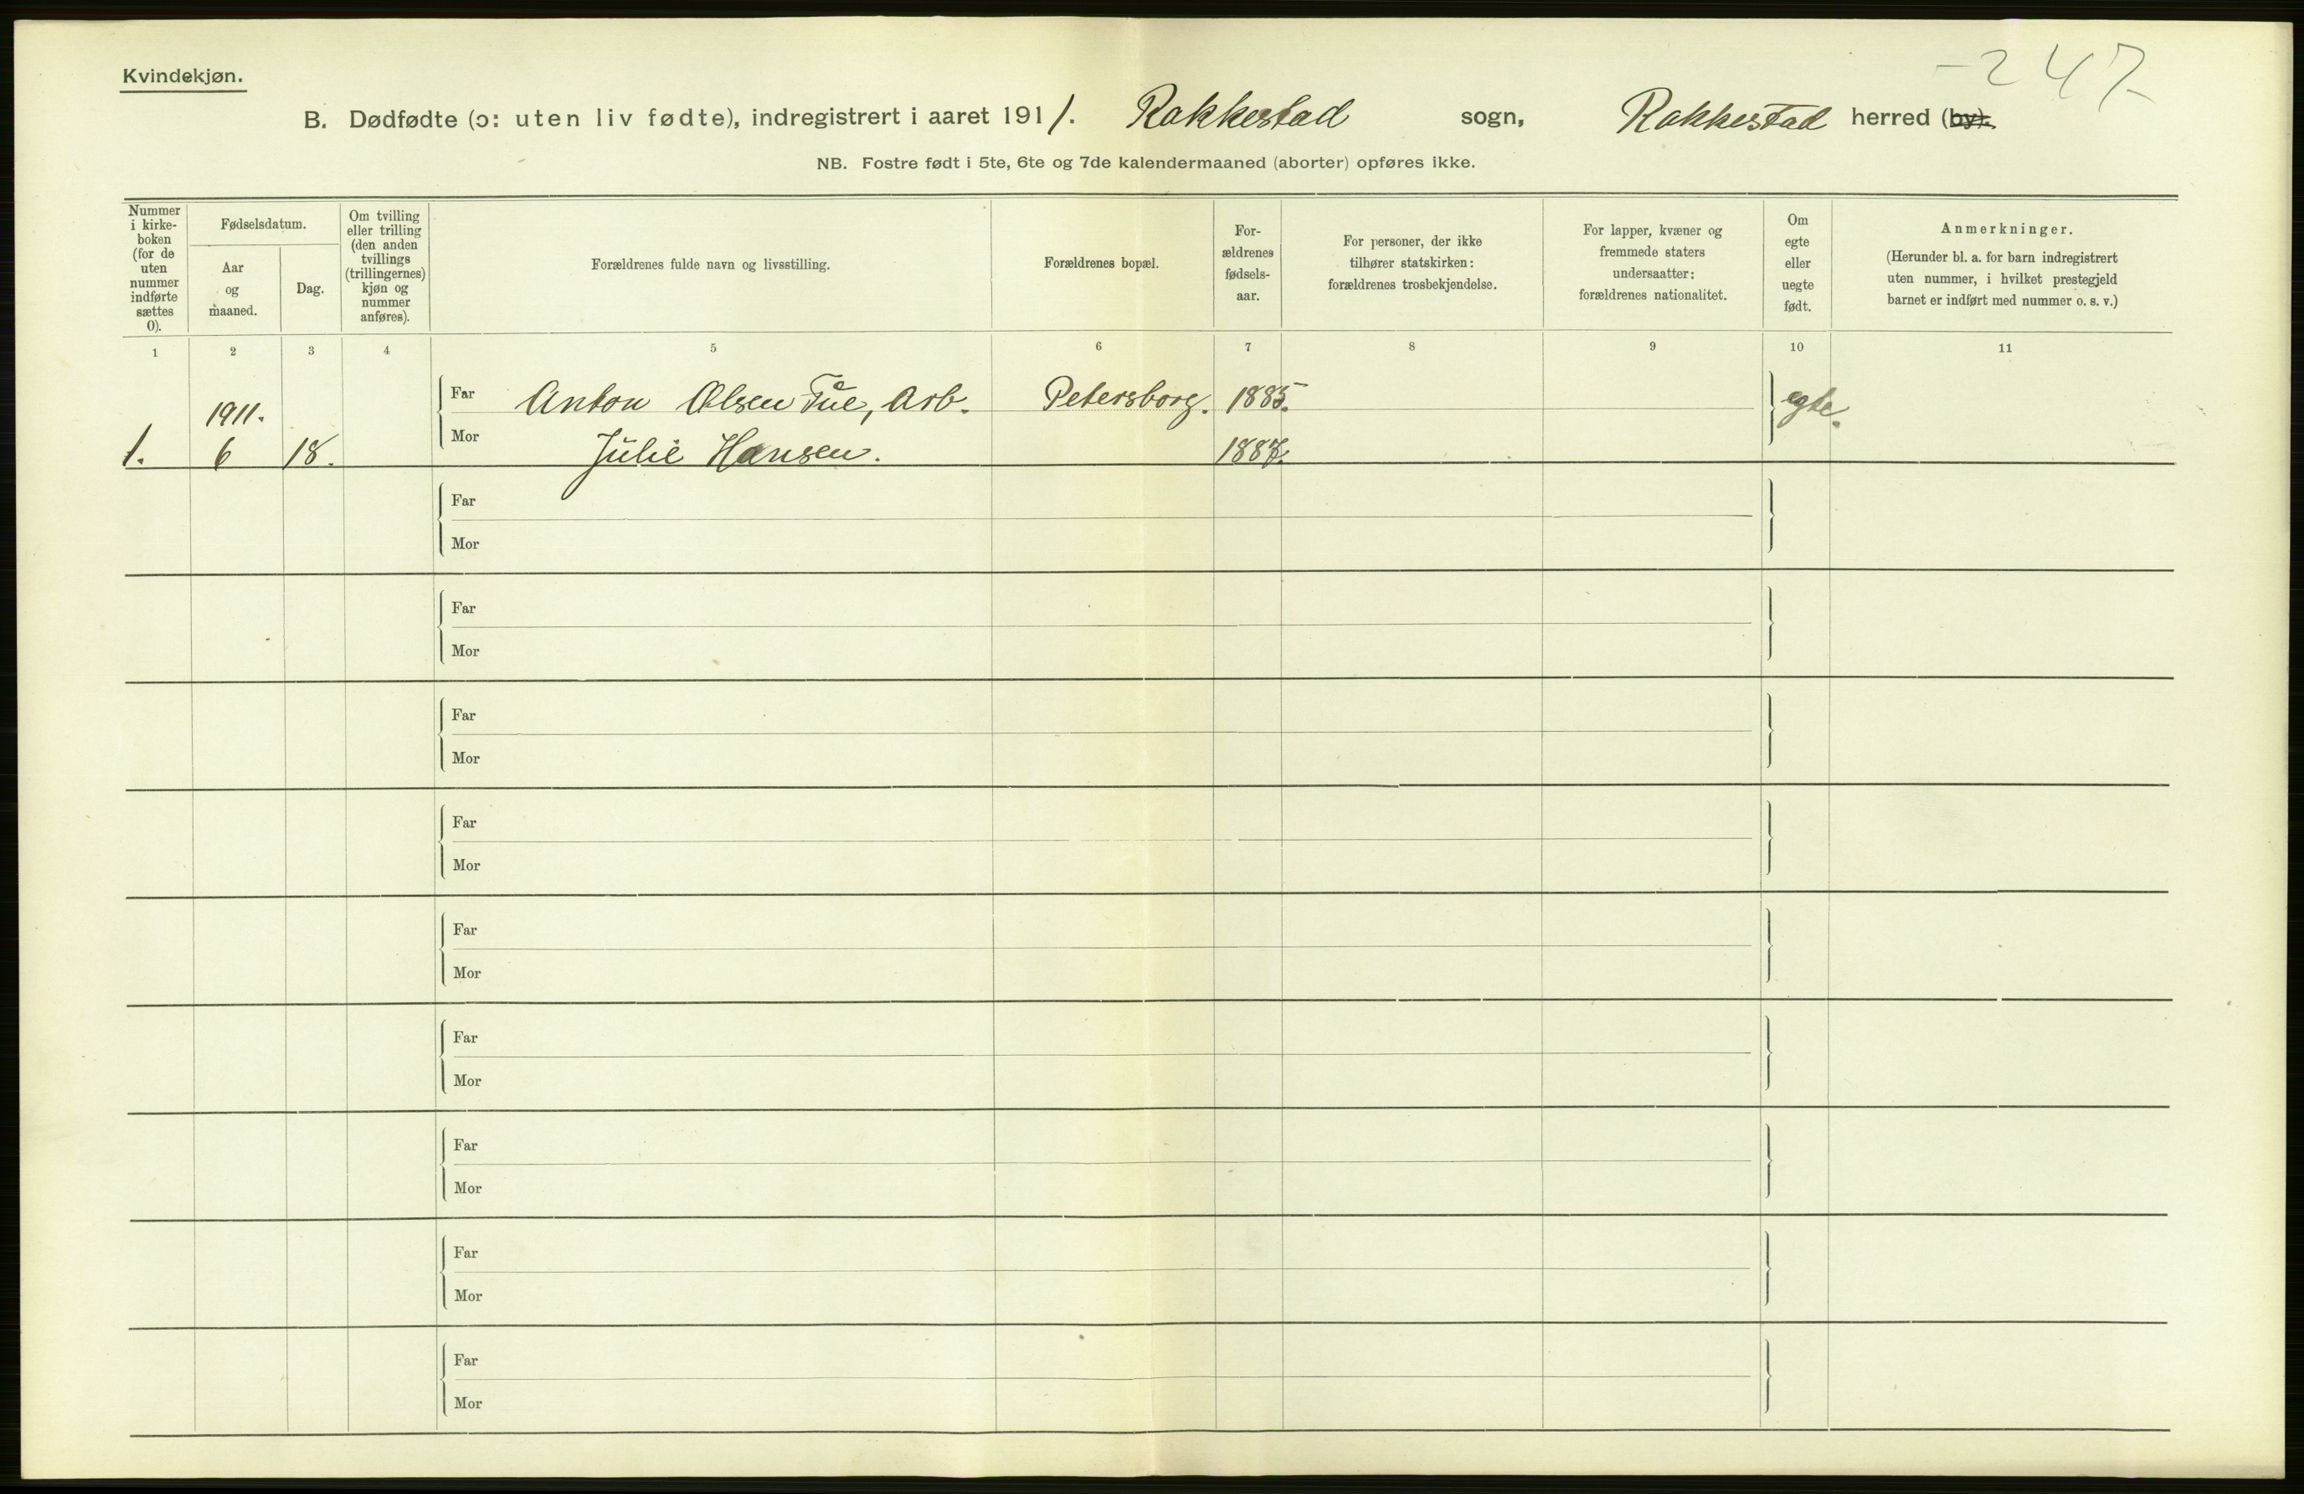 -247-
Kvindekjøn.
B. Dødfødte (ɔ: uten liv fødte), indregistrert i aaret 1911. Rakkestad sogn, Rakkestad herred (by).
NB. Fostre født i 5te, 6te og 7de kalendermaaned (aborter) opføres ikke.
Nummer
i kirke-
boken
(for de
uten
nummer
indførte
sættes
0).
Fødselsdatum.
Aar
og
maaned.
Dag.
Om tvilling
eller trilling
(den anden
tvillings
(trillingernes)
kjøn og
nummer
anføres).
Forældrenes fulde navn og livsstilling.
Forældrenes bopæl.
For-
ældrenes
fødsels-
aar.
For personer, der ikke
tilhører statskirken:
forældrenes trosbekjendelse.
For lapper, kvæner og
fremmede staters
undersaatter:
forældrenes nationalitet.
Om
egte
eller
uegte
født.
Anmerkninger.
(Herunder bl. a. for barn indregistrert
uten nummer, i hvilket prestegjeld
barnet er indført med nummer o. s. v.)
1 2 3 4 5 6 7 8 9 10 11
1911. Far Anton Olsen Tue, Arb. Petersborg. 1885. egte.
1. 6 18. Mor Julie Hansen. 1887.
Far
Mor
Far
Mor
Far
Mor
Far
Mor
Far
Mor
Far
Mor
Far
Mor
Far
Mor
Far
Mor